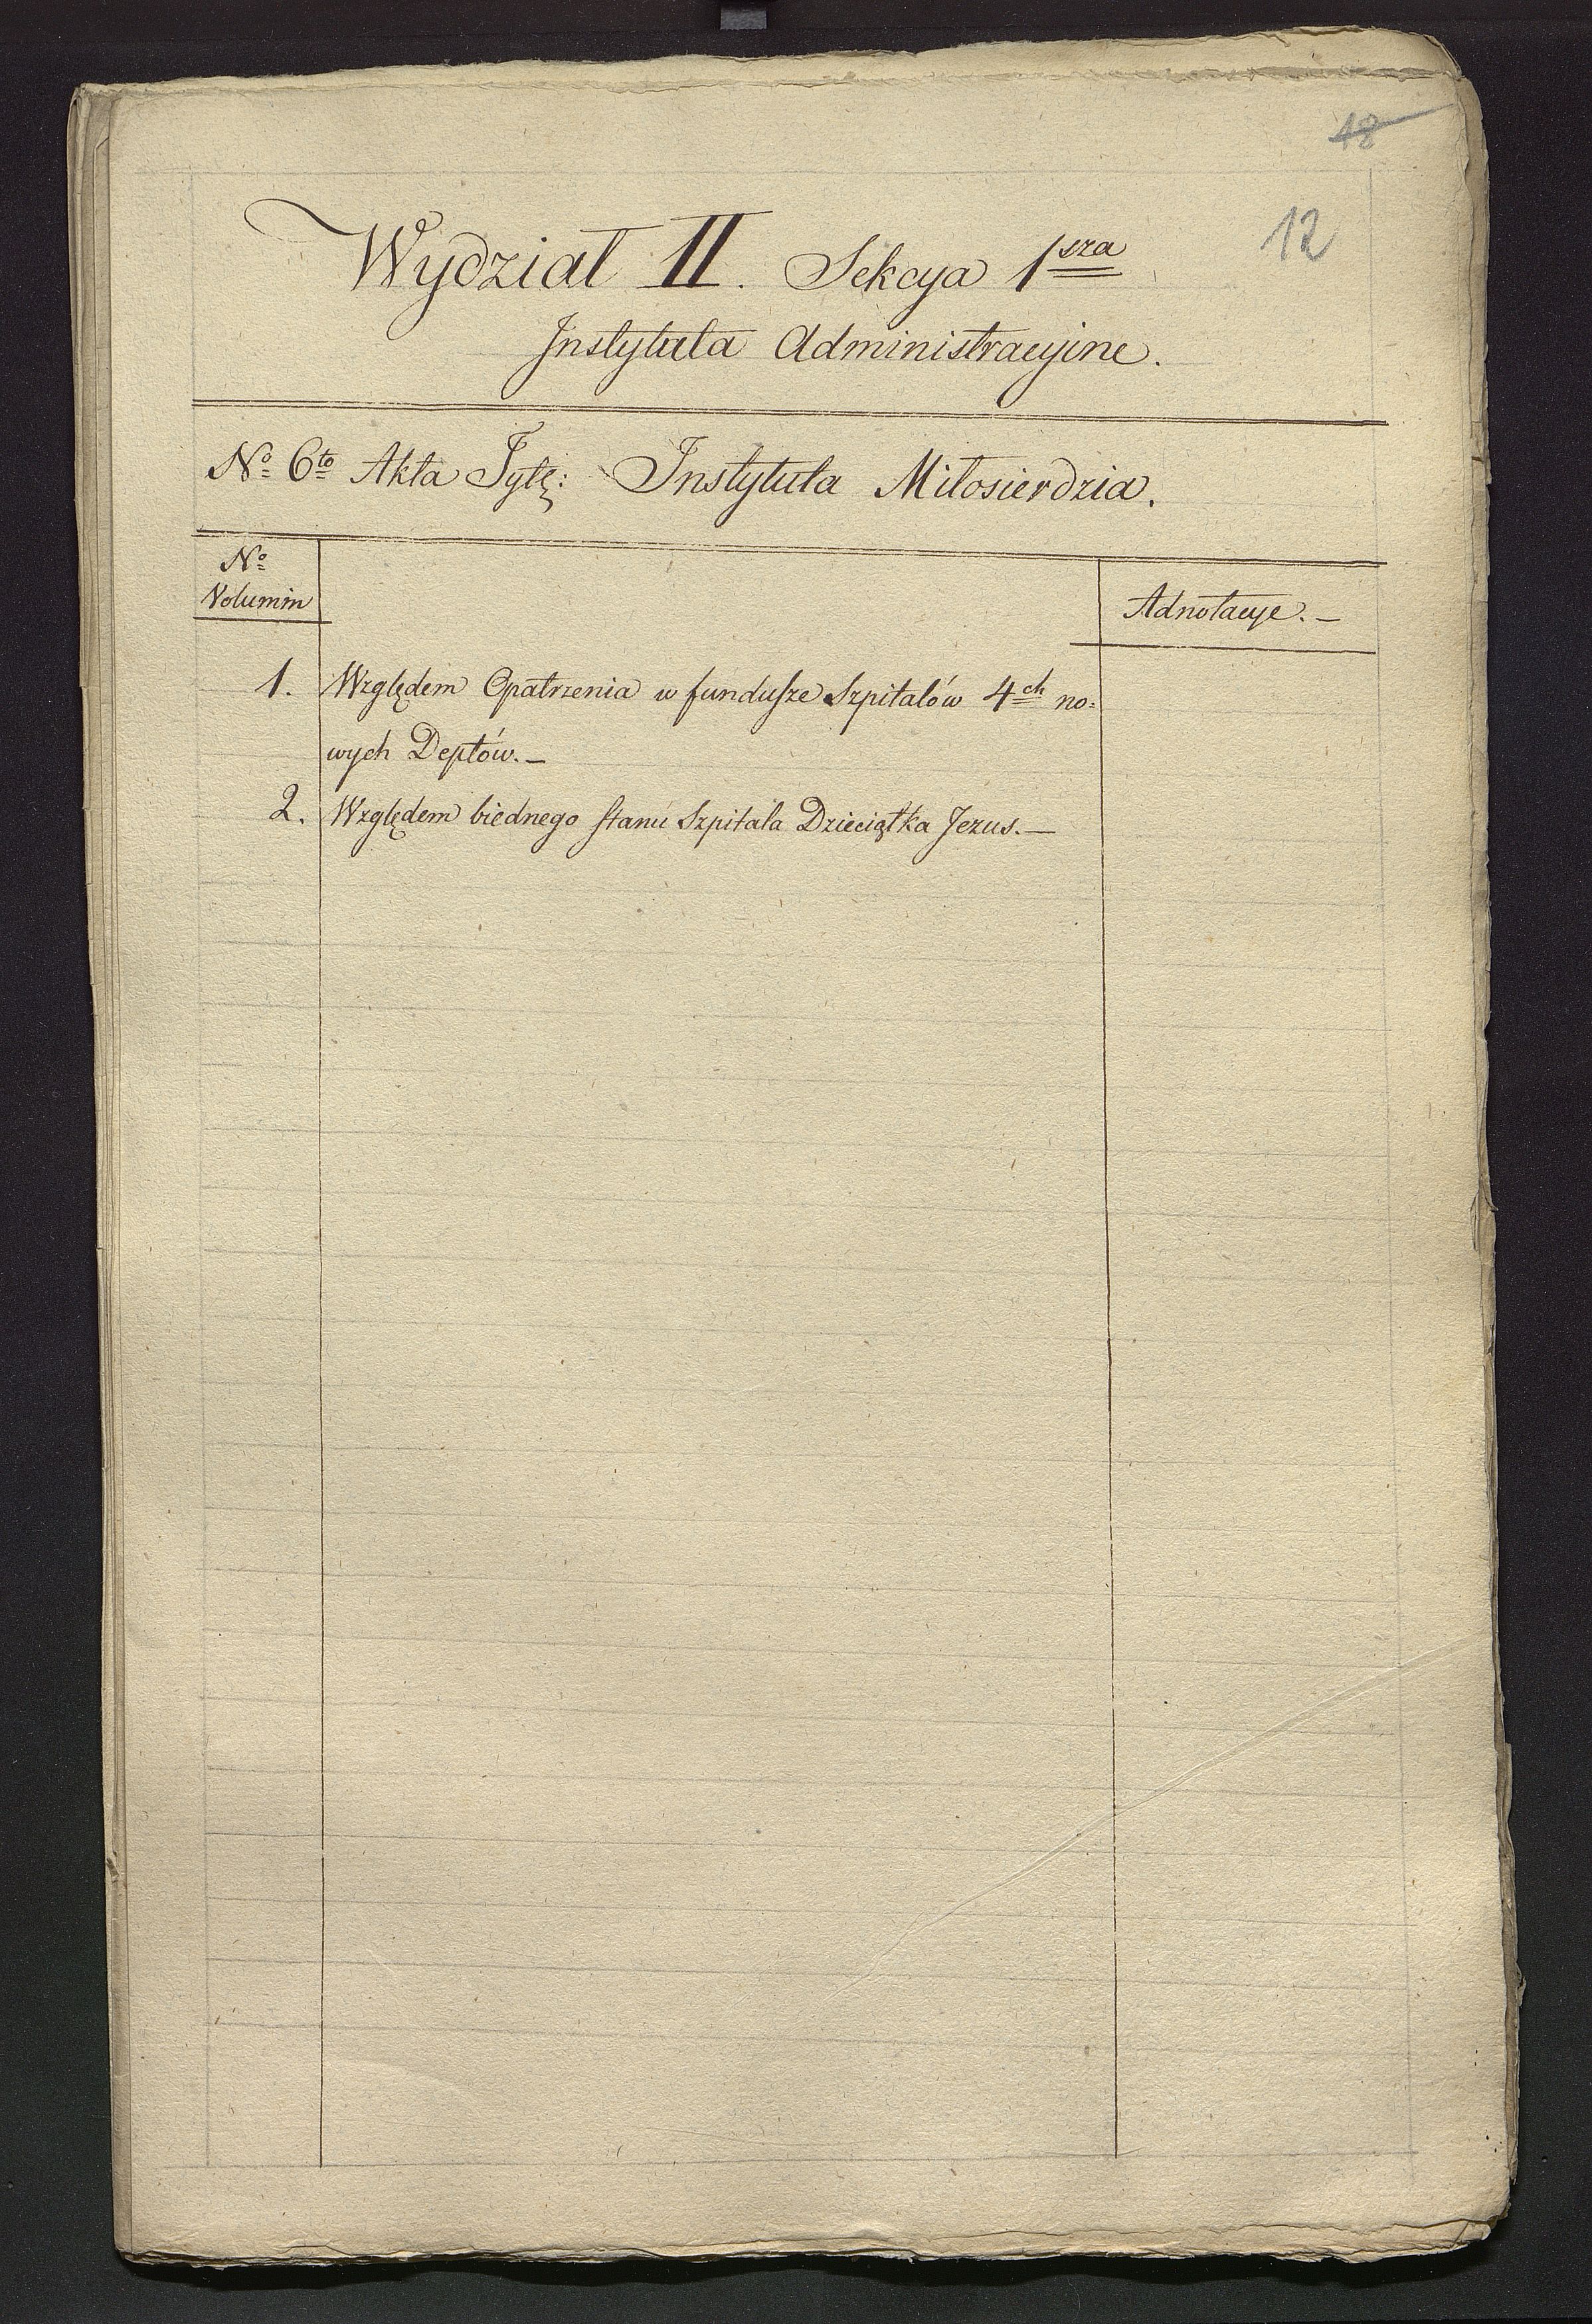 48
12
Wydział II. Sekcya 1sza
Instytuta Administracyine.
No 6to Akta Tytł: Instytuta Miłosierdzia.
No
Volumin
Adnotacye.—
1. Względem Opatrzenia w fundusze Szpitalów 4ch no=
wych Deptów.—
2. Względem biednego stanu Szpitala Dzieciątka Jezus.—